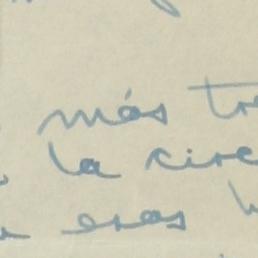 más tr
la circ
esas